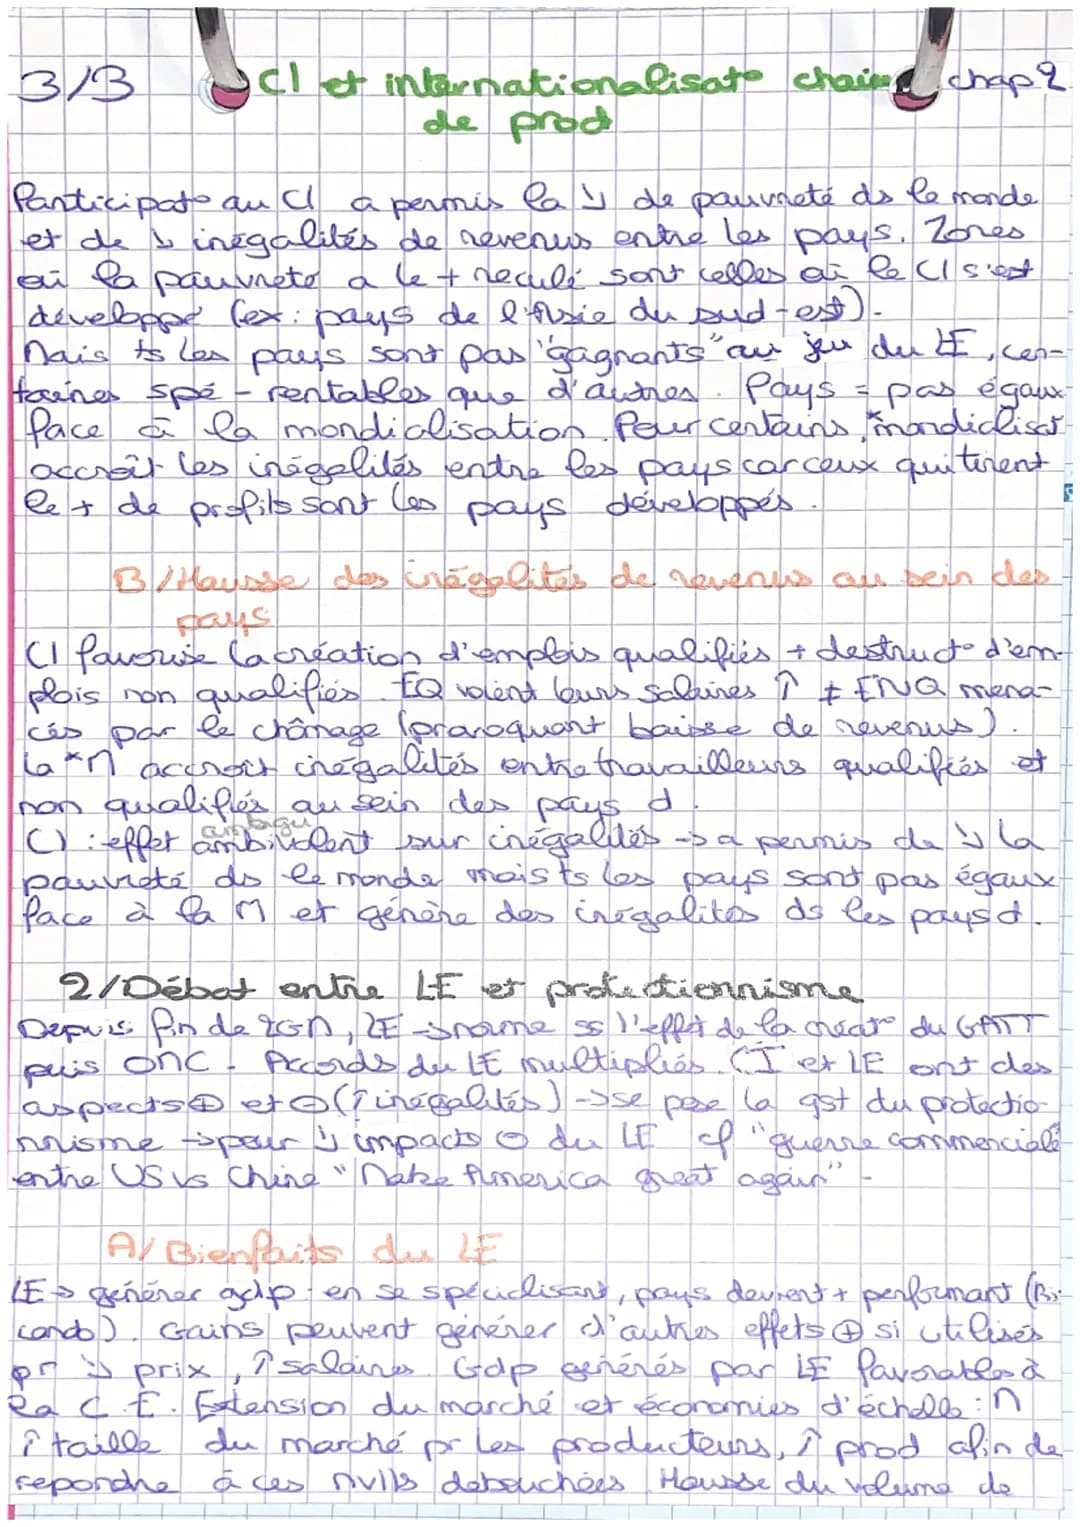 3/3 CI et internationalisat° chaine chap 2
de prod
Participat° au CI a permis la ↘ de pauvreté ds le monde
et de ↘ inégalités de revenus entre les pays. Zones
où la pauvreté a le + reculé sont celles où le CI s'est
développé (ex: pays de l'Asie du sud-est).
Mais ts les pays sont pas "gagnants" au jeu du LE, cer-
taines spé - rentables que d'autres. Pays = pas égaux
face à la mondialisation. Pour certains, mondialisat°
accroît les inégalités entre les pays car ceux qui tirent
le + de profits sont les pays développés.
B/Hausse des inégalités de revenus au sein des
pays
CI favorise la création d'emplois qualifiés + destruct° d'em-
plois non qualifiés. EQ voient leurs salaires ↑ ≠ ENQ mena-
cés par le chômage (provoquant baisse de revenus).
La *M accroit inégalités entre travailleurs qualifiés et
non qualifiés au sein des pays d.
ambigu
CI : effet ambivalent sur inégalités → a permis de ↘ la
pauvreté ds le monde mais ts les pays sont pas égaux
face à la M et génère des inégalités ds les pays d.
2/Débat entre LE et protectionnisme
Depuis fin de 2GM, LE → norme ss l'effet de la créat° du GATT
puis OMC. Accords du LE multipliés. CI et LE ont des
aspects ⊕ et ⊖ (↑ inégalités) → se pose la qst du protectio-
nnisme → pour ↘ impacts ⊖ du LE cf "guerre commerciale"
entre US vs Chine "Make America great again".
A/ Bienfaits du LE
LE → générer gdp : en se spécialisant, pays devient + performant (Ri-
cardo). Gains peuvent générer d'autres effets ⊕ si utilisés
pr ↘ prix, ↑ salaires. Gdp générés par LE favorables à
la C.E. Extension du marché et économies d'échelle : M
↑ taille du marché pr les producteurs, ↑ prod afin de
repondre à ces nvlls debouchées. Hausse du volume de